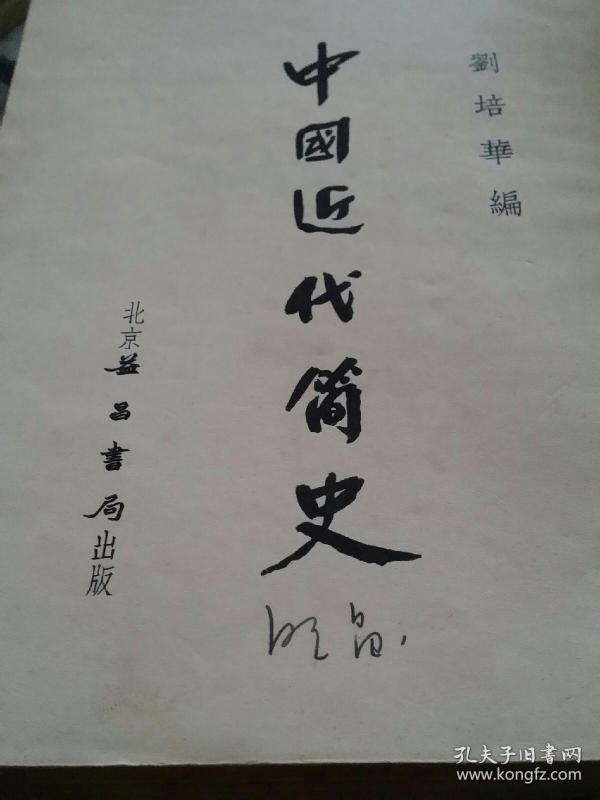 劉培華編
中國近代简史
北京益昌書局出版
孔夫子旧书网
www.kongfz.com